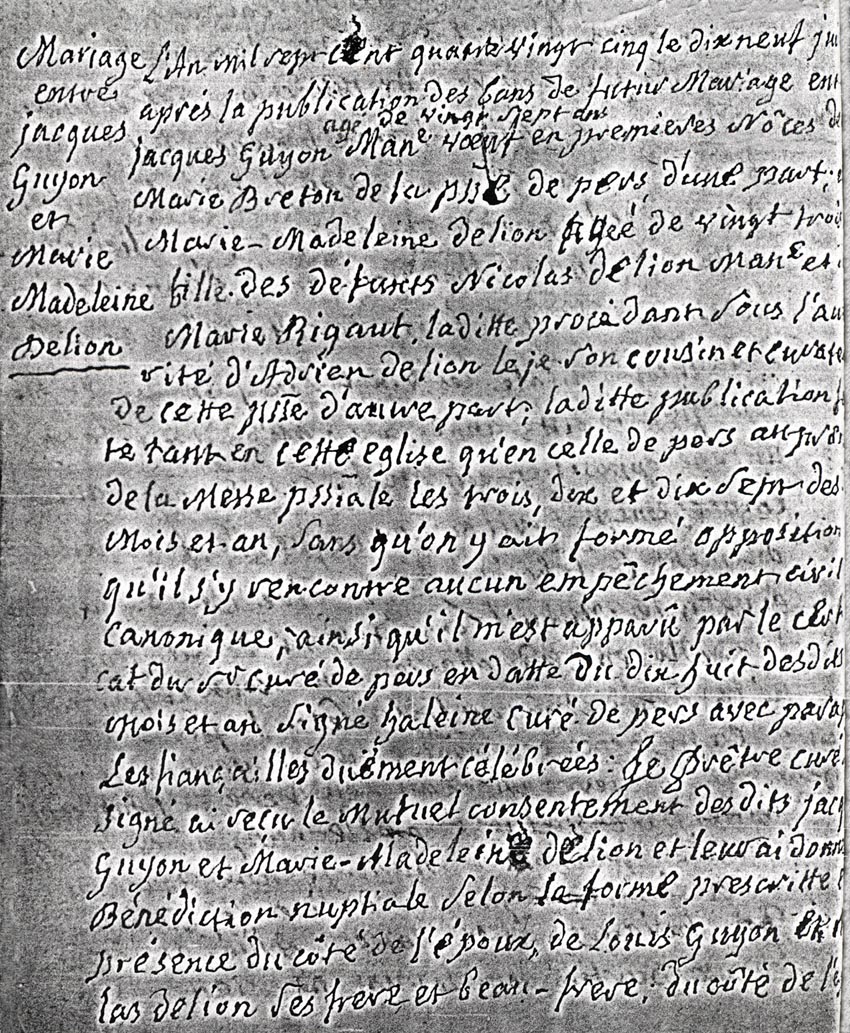 Mariage
entre
jacques
Guyon
et
Marie
Madeleine
Delion
L'An mil sept cent quatre vingt cinq le dix neuf
après la publication des bans de futur Mariage
agé de vingt sept ans
jacques Guyon Mane veuf en premieres Nôces
Marie Breton de la psse de pers d'une part;
Marie-Madeleine delion agée de vingt trois
fille des défunts Nicolas delion Mane et
Marie Rigaut, laditte procédant sous l'au
rité d'Adrien delion le je son cousin et curate
de cette psse d'autre part; laditte publication
te tant en cette eglise qu'en celle de pers au
de la Messe pssiale les trois, dix et dix sept des
Mois et an, sans qu'on y ait formé opposition
qu'il s'y rencontre aucun empêchement civil
canonique, ainsi qu'il m'est apparû par le cert
cat du sr curé de pers en datte du dix huit desdits
mois et an signé haleine curé de pers avec para
Les fiançailles duëment célébrées: Je Prêtre curé
signé ai reçu le Mutuel consentement desdits jac
Guyon et Marie-Madeleine delion et leur ai donn
Bénédiction nuptiale selon la forme prescritte
présence du côté de l'époux, de Louis Guyon et
las delion ses frere et beau-frere; du côté de l'